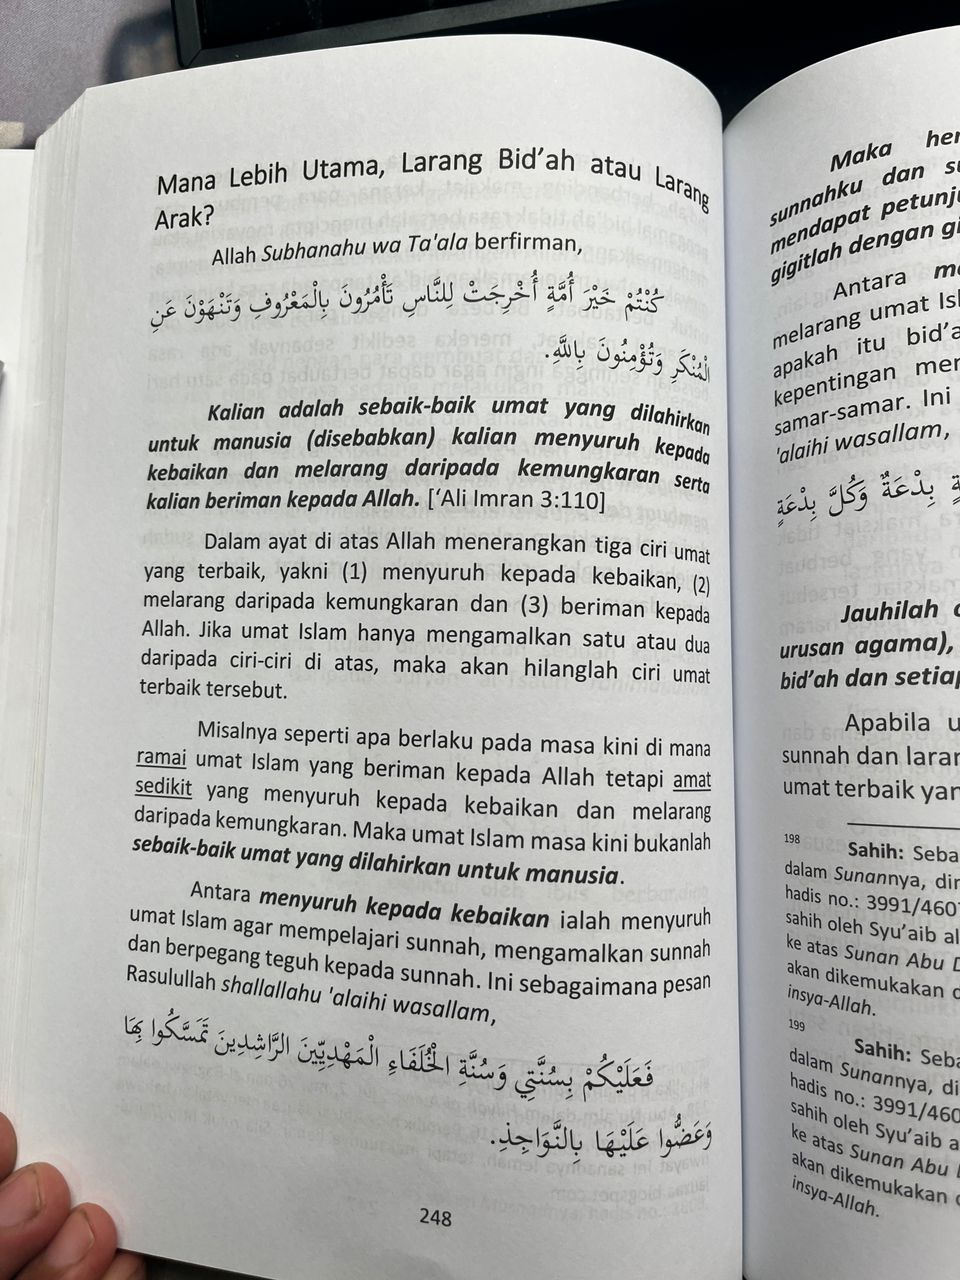 Mana Lebih Utama, Larang Bid'ah atau Larang
Arak?
Allah Subhanahu wa Ta'ala berfirman,
كُنْتُمْ خَيْرَ أُمَّةٍ أُخْرِجَتْ لِلنَّاسِ تَأْمُرُونَ بِالْمَعْرُوفِ وَتَنْهَوْنَ عَنِ
الْمُنْكَرِ وَتُؤْمِنُونَ بِاللَّهِ.
Kalian adalah sebaik-baik umat yang dilahirkan
untuk manusia (disebabkan) kalian menyuruh kepada
kebaikan dan melarang daripada kemungkaran serta
kalian beriman kepada Allah. ['Ali Imran 3:110]
Dalam ayat di atas Allah menerangkan tiga ciri umat
yang terbaik, yakni (1) menyuruh kepada kebaikan, (2)
melarang daripada kemungkaran dan (3) beriman kepada
Allah. Jika umat Islam hanya mengamalkan satu atau dua
daripada ciri-ciri di atas, maka akan hilanglah ciri umat
terbaik tersebut.
Misalnya seperti apa berlaku pada masa kini di mana
ramai umat Islam yang beriman kepada Allah tetapi amat
sedikit yang menyuruh kepada kebaikan dan melarang
daripada kemungkaran. Maka umat Islam masa kini bukanlah
sebaik-baik umat yang dilahirkan untuk manusia.
Antara menyuruh kepada kebaikan ialah menyuruh
umat Islam agar mempelajari sunnah, mengamalkan sunnah
dan berpegang teguh kepada sunnah. Ini sebagaimana pesan
Rasulullah shallallahu 'alaihi wasallam,
فَعَلَيْكُمْ بِسُنَّتِي وَسُنَّةِ الْخُلَفَاءِ الْمَهْدِيِّينَ الرَّاشِدِينَ تَمَسَّكُوا بِهَا
وَعَضُّوا عَلَيْهَا بِالنَّوَاجِذِ.
248
Maka
sunnahku dan
mendapat
gigitlah dengan
Antara
melarang umat
apakah itu
kepentingan
samar-samar. Ini
'alaihi wasallam,
بِدْعَةٌ وَكُلَّ بِدْعَةٍ
Jauhilah
urusan agama),
bid'ah dan
Apabila
sunnah dan
umat terbaik
198
Sahih:
dalam Sunannya,
hadis no.:
sahih oleh Syu'aib
ke atas Sunan Abu
akan dikemukakan
insya-Allah.
199
Sahih:
dalam Sunannya,
hadis no.:
sahih oleh Syu'aib
ke atas Sunan Abu
akan dikemukakan
insya-Allah.